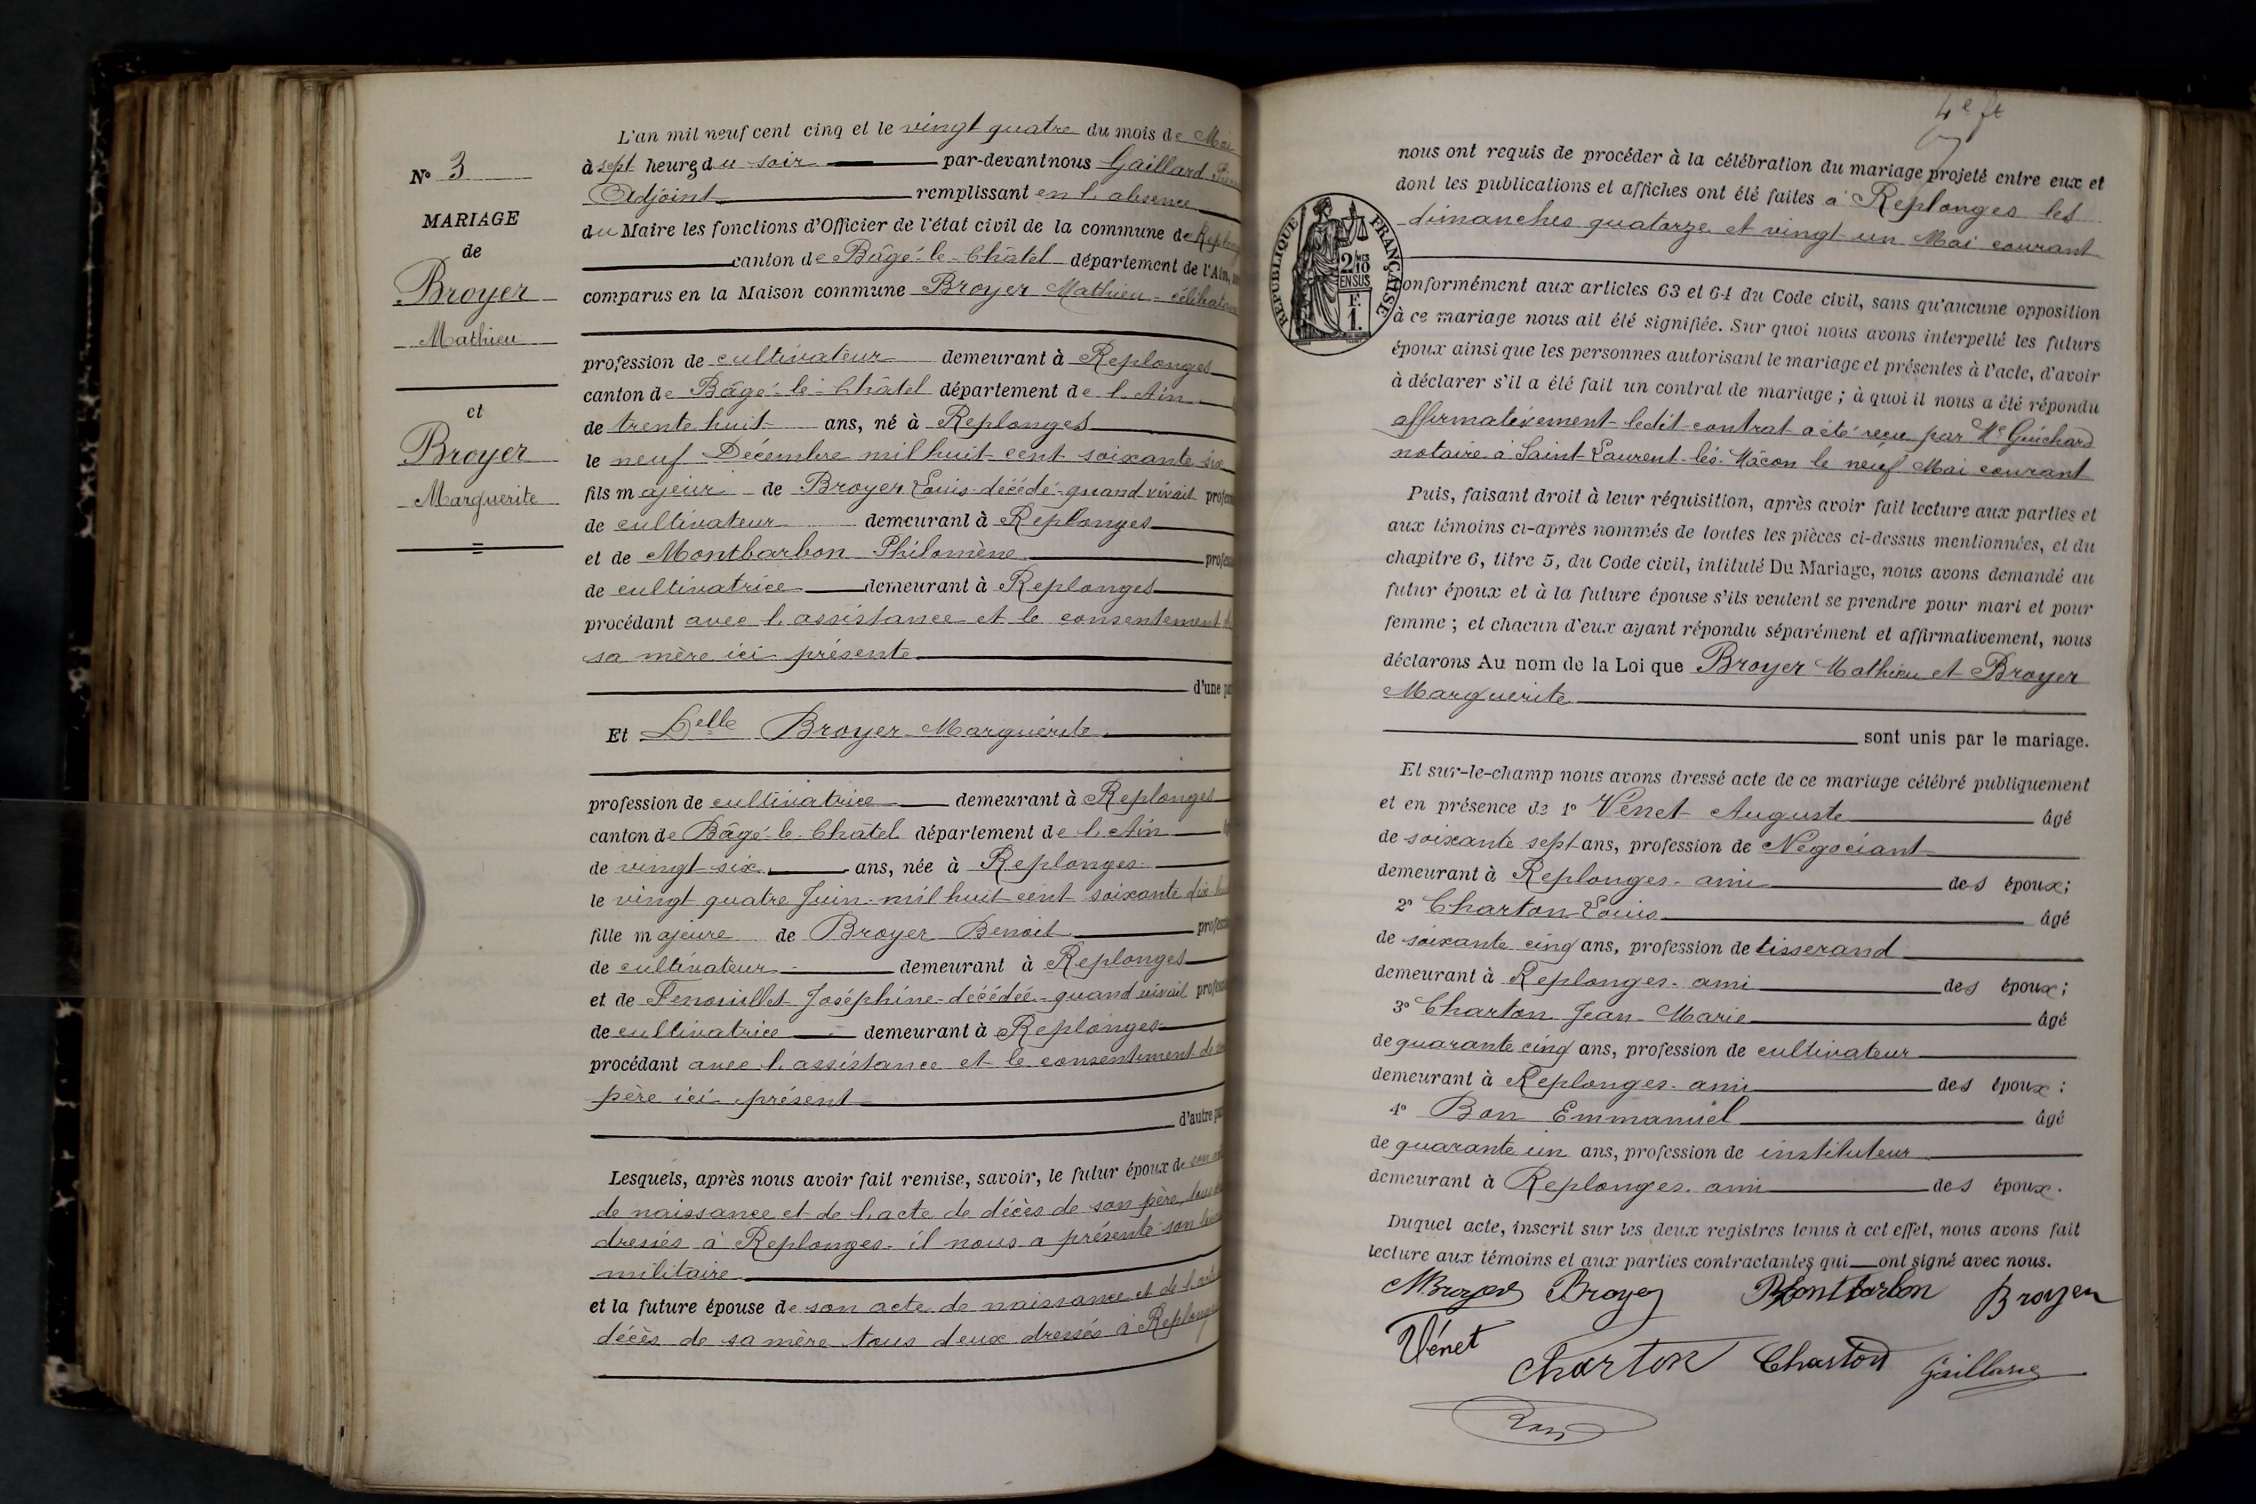 N° 3
MARIAGE
de
Broyer
Mathieu
et
Broyer
Marguerite
L'an mil neuf cent cinq et le vingt quatre du mois de Mai
à sept heures du soir par-devant nous Gaillard
Adjoint remplissant en l'absence
du Maire les fonctions d'Officier de l'état civil de la commune de
canton de Bâgé-le-Châtel département de l'Ain,
comparus en la Maison commune Broyer Mathieu - célibataire
profession de cultivateur demeurant à Replonges
canton de Bâgé-le-Châtel département de l'Ain
de trente huit ans, né à Replonges
le neuf Décembre mil huit cent soixante six
fils majeur de Broyer Louis décédé quand vivait
de cultivateur demeurant à Replonges
et de Montbarbon Philomène
de cultivatrice demeurant à Replonges
procédant avec l'assistance et le consentement
sa mère ici présente
d'une
Et Delle Broyer Marguérite
profession de cultivatrice demeurant à Replonges
canton de Bâgé-le-Châtel département de l'Ain
de vingt six ans, née à Replonges
le vingt quatre Juin mil huit cent soixante dix
fille majeure de Broyer Benoit
de cultivateur demeurant à Replonges
et de Fenouillet Joséphine - décédée - quand vivait
de cultivatrice demeurant à Replonges
procédant avec l'assistance et le consentement de
père ici présent
d'autre
Lesquels, après nous avoir fait remise, savoir, le futur époux de son
de naissance et de l'acte de décès de son père,
dressés à Replonges - il nous a présenté son
militaire
et la future épouse de son acte de naissance et de
décès de sa mère tous deux dressés à
4e ft
nous ont requis de procéder à la célébration du mariage projeté entre eux et
dont les publications et affiches ont été faites à Replonges les
dimanches quatorze et vingt-un Mai courant
RÉPUBLIQUE FRANÇAISE
2/10 EN SUS
F. 1.
conformément aux articles 63 et 64 du Code civil, sans qu'aucune opposition
à ce mariage nous ait été signifiée. Sur quoi nous avons interpellé les futurs
époux ainsi que les personnes autorisant le mariage et présentes à l'acte, d'avoir
à déclarer s'il a été fait un contrat de mariage ; à quoi il nous a été répondu
affirmativement - ledit contrat a été reçu par Me Guichard
notaire à Saint-Laurent-lès-Mâcon le neuf Mai courant
Puis, faisant droit à leur réquisition, après avoir fait lecture aux parties et
aux témoins ci-après nommés de toutes les pièces ci-dessus mentionnées, et du
chapitre 6, titre 5, du Code civil, intitulé Du Mariage, nous avons demandé au
futur époux et à la future épouse s'ils veulent se prendre pour mari et pour
femme ; et chacun d'eux ayant répondu séparément et affirmativement, nous
déclarons Au nom de la Loi que Broyer Mathieu et Broyer
Marguerite
sont unis par le mariage.
Et sur-le-champ nous avons dressé acte de ce mariage célébré publiquement
et en présence de 1° Vénet Auguste âgé
de soixante sept ans, profession de Négociant
demeurant à Replonges. ami des époux;
2° Charton Louis âgé
de soixante cinq ans, profession de tisserand
demeurant à Replonges. ami des époux;
3° Charton Jean-Marie âgé
de quarante cinq ans, profession de cultivateur
demeurant à Replonges. ami des époux :
4° Bon Emmanuel âgé
de quarante un ans, profession de instituteur
demeurant à Replonges. ami des époux.
Duquel acte, inscrit sur les deux registres tenus à cet effet, nous avons fait
lecture aux témoins et aux parties contractantes qui ont signé avec nous.
MBroyer Broyer Montbarbon Broyer
Vénet Charton Charton Gaillard
Bon